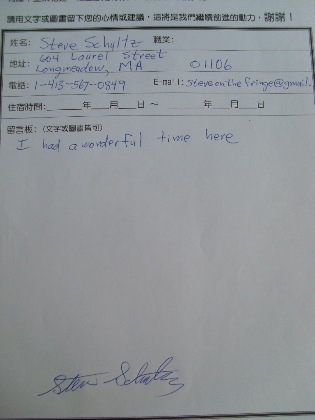 請用文字或圖畫留下您的心情或建議，這將是我們繼續前進的動力，謝謝！
姓名: Steve Schultz 職業:
地址: 604 Laurel Street
Longmeadow, MA 01106
電話: 1-413-567-0849 E-mail: steveonthefringe@gmail.
住宿時間: 年 月 日 ～ 年 月 日
留言板: (文字或圖畫皆可)
I had a wonderful time here
Steve Schultz